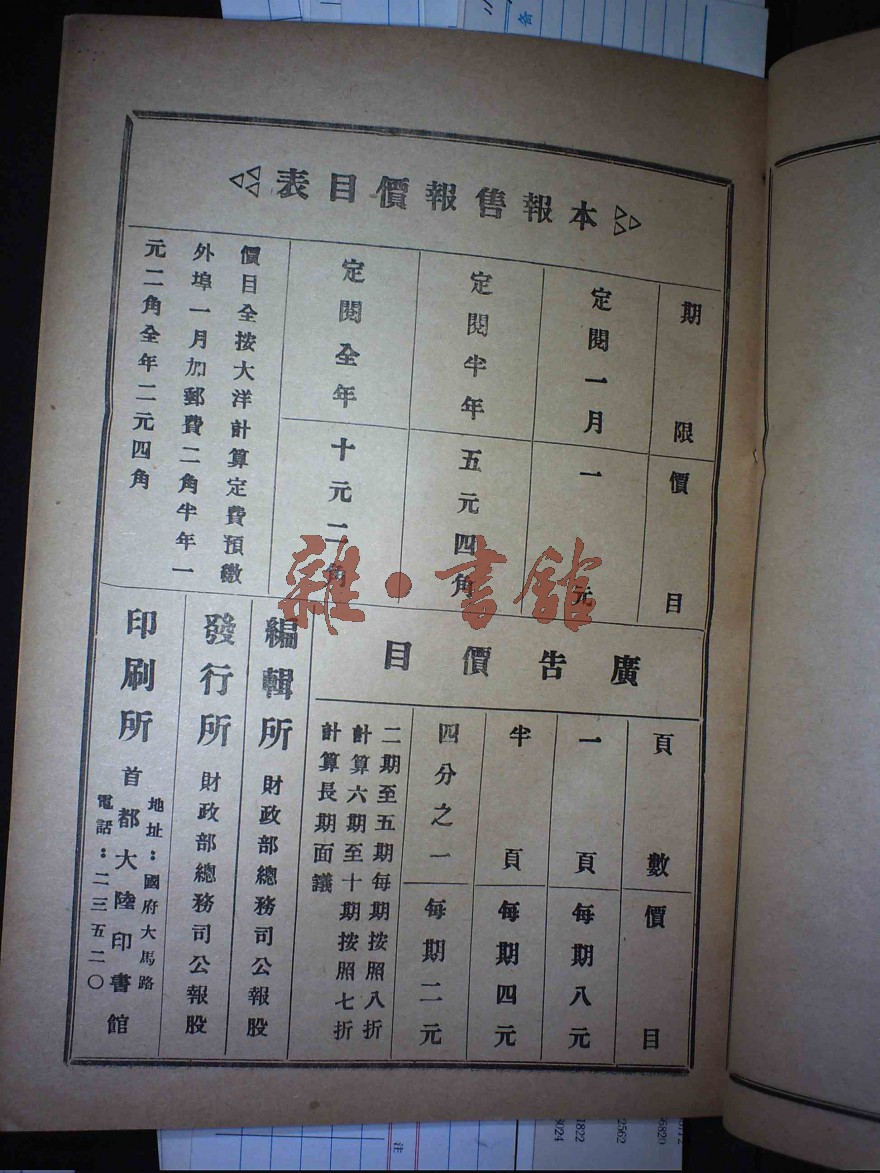 本報售報價目表
期限
價目
定閱一月
一元
定閱半年
五元四角
定閱全年
十元二角
價目全按大洋計算定費預繳
外埠一月加郵費二角半年一
元二角全年二元四角
廣告價目
頁數
價目
一頁
每期八元
半頁
每期四元
四分之一
每期二元
二期至五期每期按照八折
計算六期至十期按照七折
計算長期面議
編輯所 財政部總務司公報股
發行所 財政部總務司公報股
印刷所 首都大陸印書館
地址:國府大馬路
電話:二三五二〇
雜·書館
各
注
1822
2562
6820